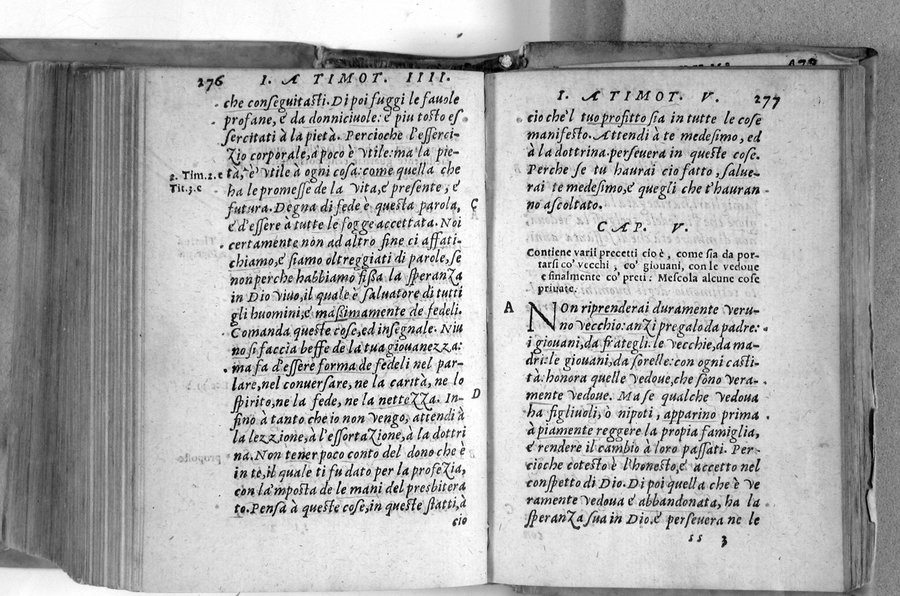 276 I. A TIMOT. IIII.
che conseguitasti. Di poi fuggi le fauole
profane, e da donniciuole: e piu tosto es
sercitati à la pietà. Percioche l'esserci-
zio corporale, a poco è vtile: ma la pie-
2. Tim. 2. e
tà, è vtile à ogni cosa: come quella che
Tit. 3. c
ha le promesse de la vita, e presente, e
futura. Degna di fede è questa parola,
C
e d'essere à tutte le fogge accettata. Noi
certamente non ad altro fine ci affati-
chiamo, e siamo oltreggiati di parole, se
non perche habbiamo fissa la speranza
in Dio viuo, il quale è saluatore di tutti
gli huomini, e massimamente de fedeli.
Comanda queste cose, ed insegnale. Niu
no si faccia beffe de la tua giouanezza:
ma fa d'essere forma de fedeli nel par-
lare, nel conuersare, ne la carità, ne lo
spirito, ne la fede, ne la nettezza. In-
D
fino à tanto che io non vengo, attendi à
la lezzione, à l'essortazione, à la dottri
na. Non tener poco conto del dono che è
in te, il quale ti fu dato per la profezia,
con la 'mposta de le mani del presbitera
to. Pensa à queste cose, in queste statti, à
cio
I. A TIMOT. V. 277
cio che'l tuo profitto sia in tutte le cose
manifesto. Attendi à te medesimo, ed
à la dottrina. perseuera in queste cose.
Perche se tu haurai cio fatto, salue-
rai te medesimo, e quegli che t'hauran
no ascoltato.
CAP. V.
Contiene varii precetti cio è, come sia da por-
tarsi co' vecchi, co' giouani, con le vedoue
e finalmente co' preti. Mescola alcune cose
priuate.
A
NOn riprenderai duramente veru-
no vecchio: anzi pregalo da padre:
i giouani, da frategli: le vecchie, da ma-
dri: le giouani, da sorelle: con ogni casti-
tà: honora quelle vedoue, che sono vera-
mente vedoue. Ma se qualche vedoua
ha figliuoli, ò nipoti, apparino prima
à piamente reggere la propia famiglia,
e rendere il cambio à loro passati. Per-
cioche cotesto è l'honesto, e accetto nel
conspetto di Dio. Di poi quella che è ve
ramente vedoua e abbandonata, ha la
speranza sua in Dio. e perseuera ne le
ss 3